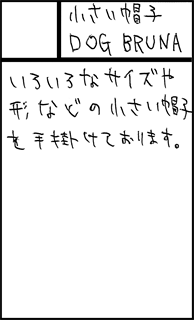 小さい帽子
DOG BRUNA
いろいろなサイズや
形などの小さい帽子
を手掛けております。